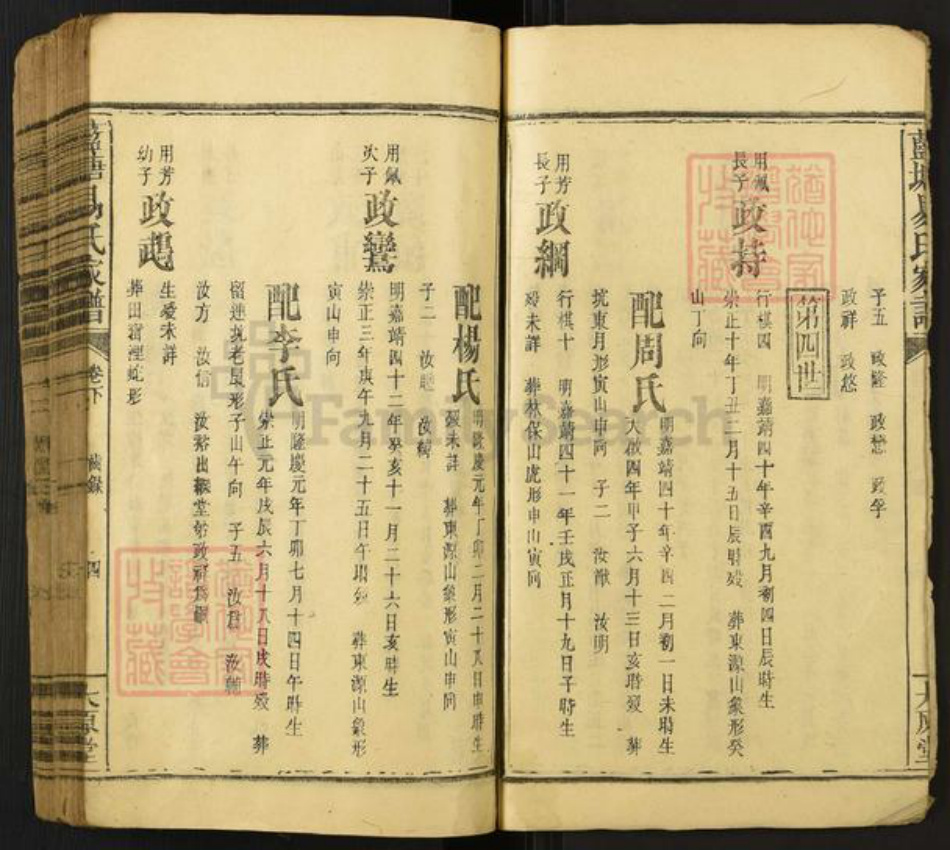 子五 政隆 政㦤 政孚
政祥 政悠
第四世
用佩
長子
政持
行棋四 明嘉靖四十年辛酉九月初四日辰時生
崇正十年丁丑二月十五日辰時殁 葬東源山象形癸
山丁向
配周氏
明嘉靖四十年辛酉二月初一日未時生
天啟四年甲子六月十三日亥時殁 葬
坑東月形寅山申向 子二 汝猷 汝明
用芳
長子
政綱
行棋十 明嘉靖四十一年壬戌正月十九日子時生
殁未詳 葬林保山虎形申山寅向
配楊氏
明隆慶元年丁卯二月二十八日申時生
殁未詳 葬東源山象形寅山申向
子二 汝聰
用佩
次子
政鸞
明嘉靖四十二年癸亥十一月二十六日亥時生
崇正三年庚午九月二十五日午時殁 葬東源山象形
寅山申向
配李氏
明隆慶元年丁卯七月十四日午時生
崇正元年戊辰六月十八日戌時殁 葬
留連坑老鼠形子山午向 子五 汝君 汝輔
汝方 汝信
用芳
幼子
生殁未詳
葬田富浬蛇形
卷下
四
太原堂
FamilySearch